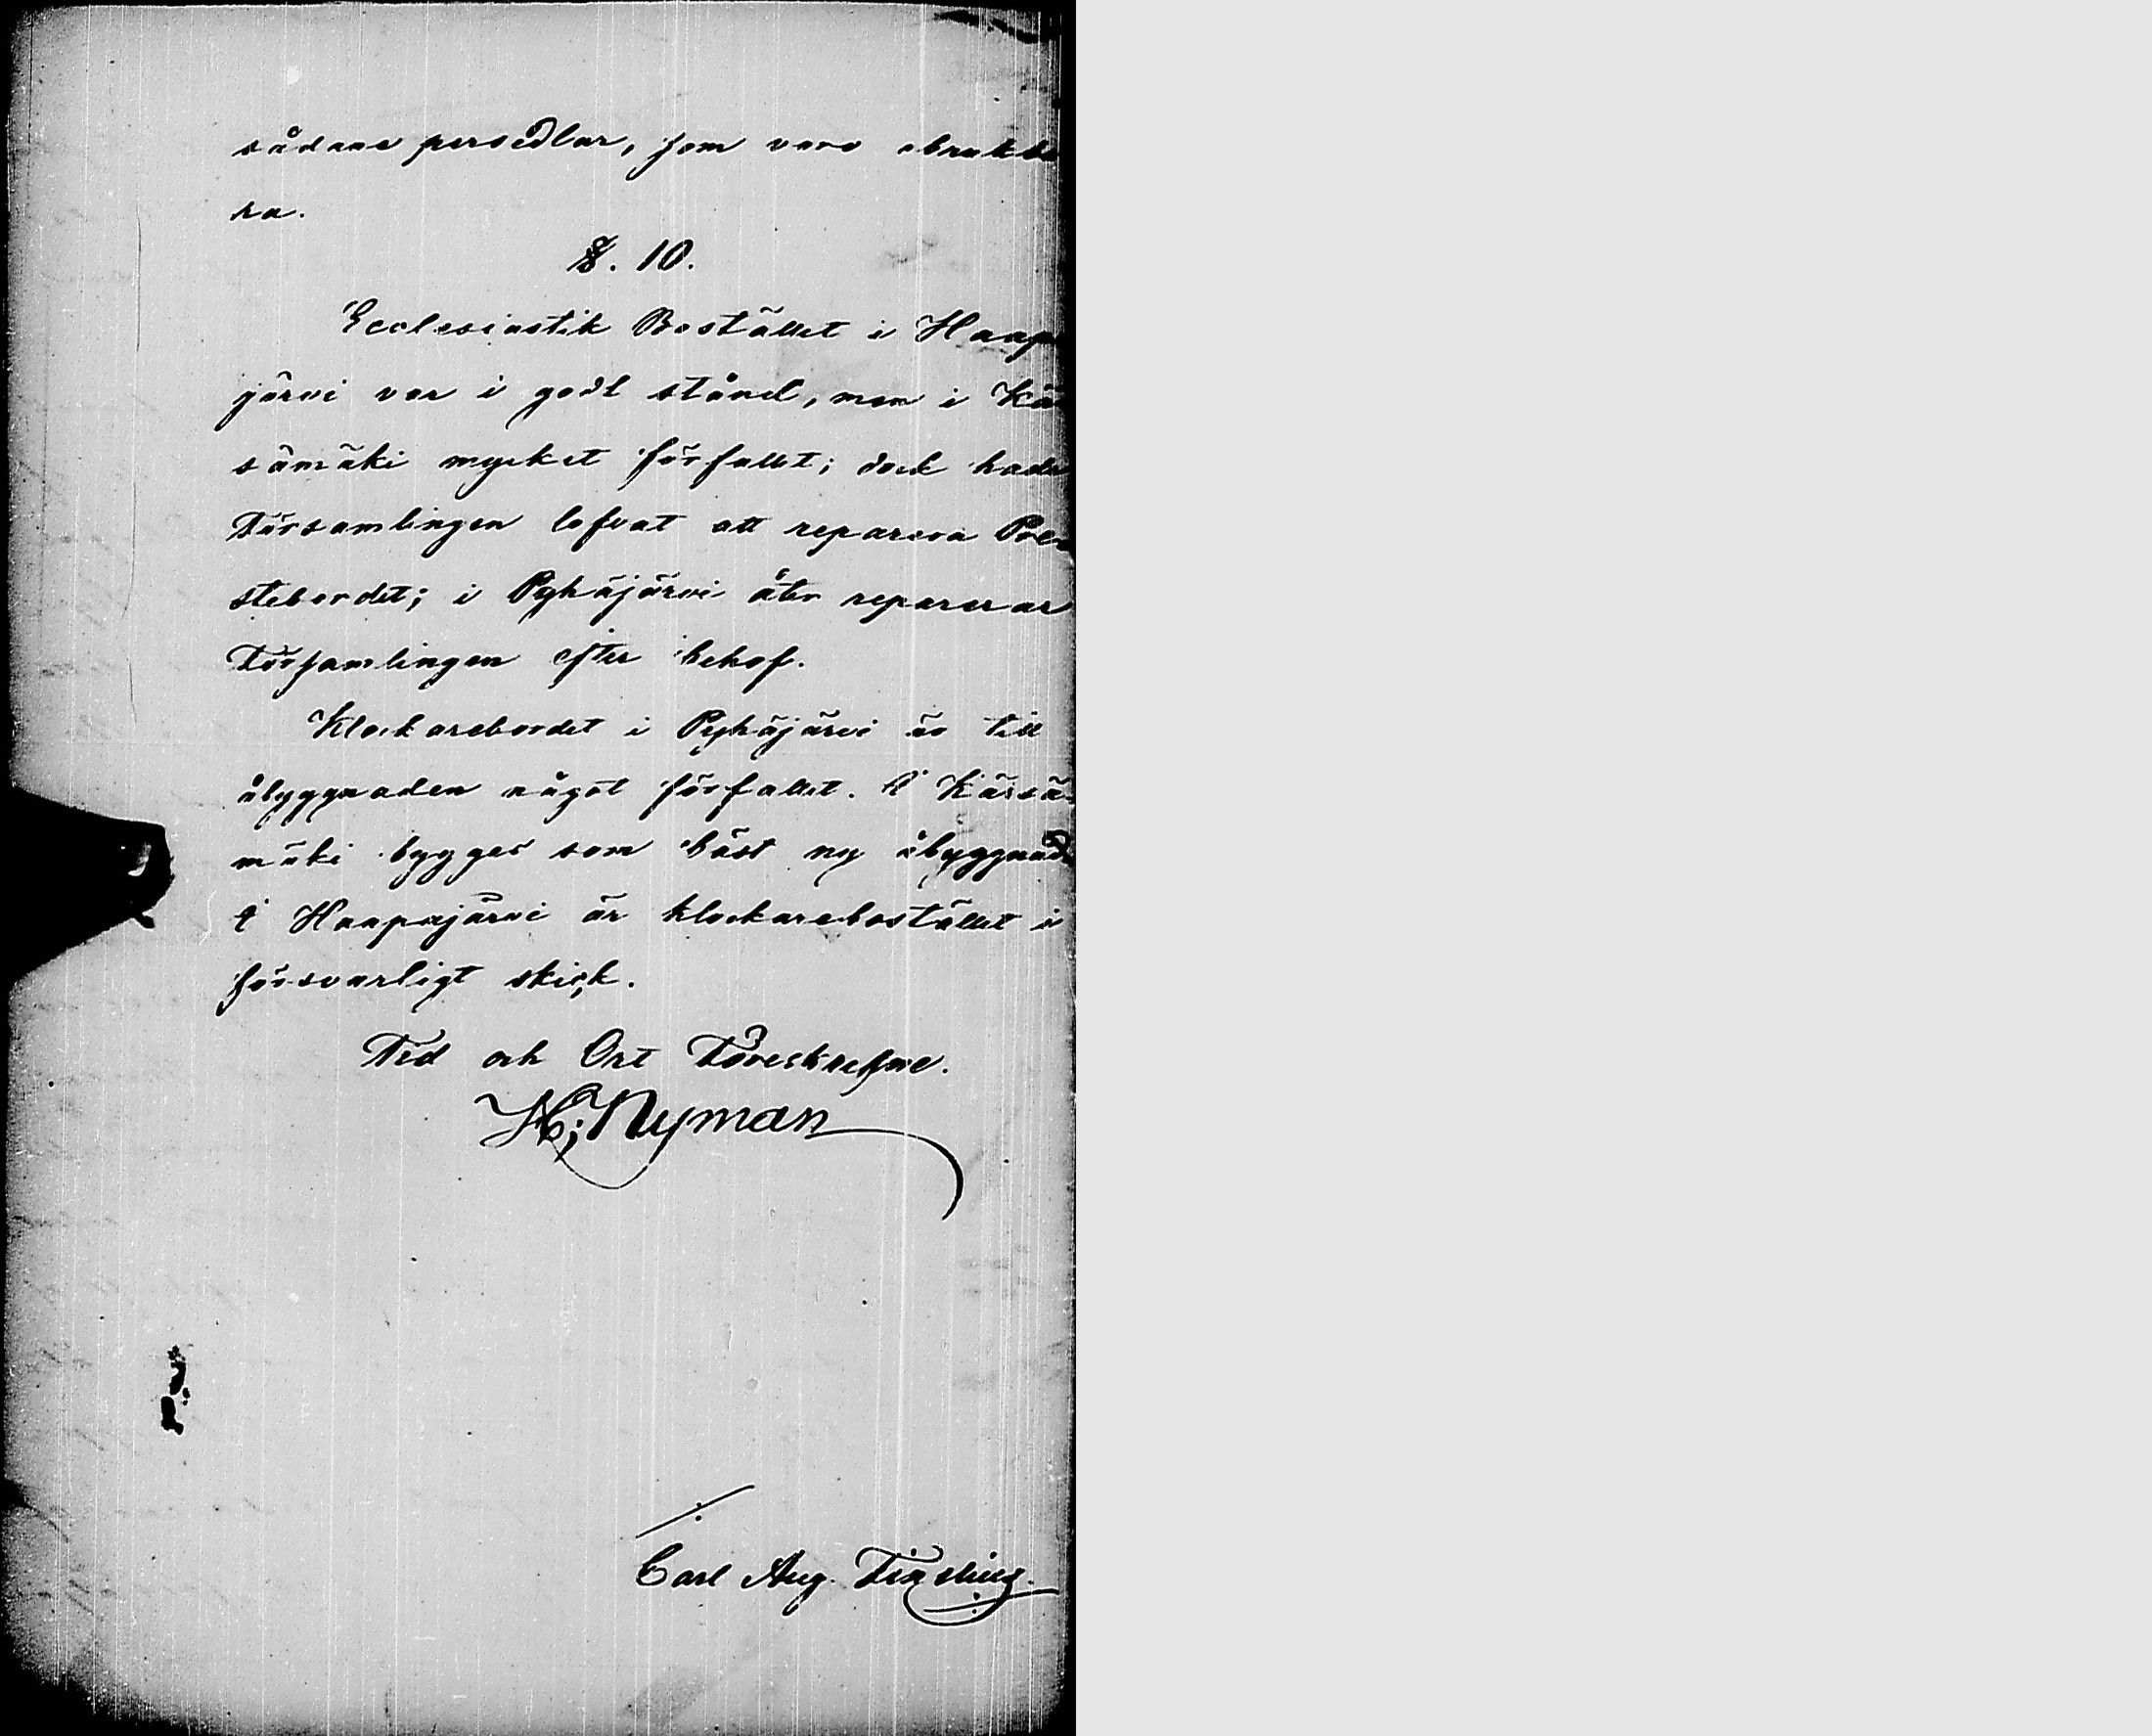 sådane persedlar, som voro obrukba
ra.
§. 10.
Ecclesiastik Bostället i Haapa
järvi var i godt stånd, men i Kär
sämäki mycket förfallet; dock hade
Församlingen lofvat att reparera Pre-
stebordet; i Pyhäjärvi åter reparerar
Församlingen efter behof.
Klockarebordet i Pyhäjärvi är till
åbyggnaden något förfallet. I Kärsä-
mäki bygges som bäst ny åbyggnad
i Haapajärvi är klockarebostället i
försvarligt skick.
Tid och Ort Föreskrefne.
H; Nyman
Carl Aug.